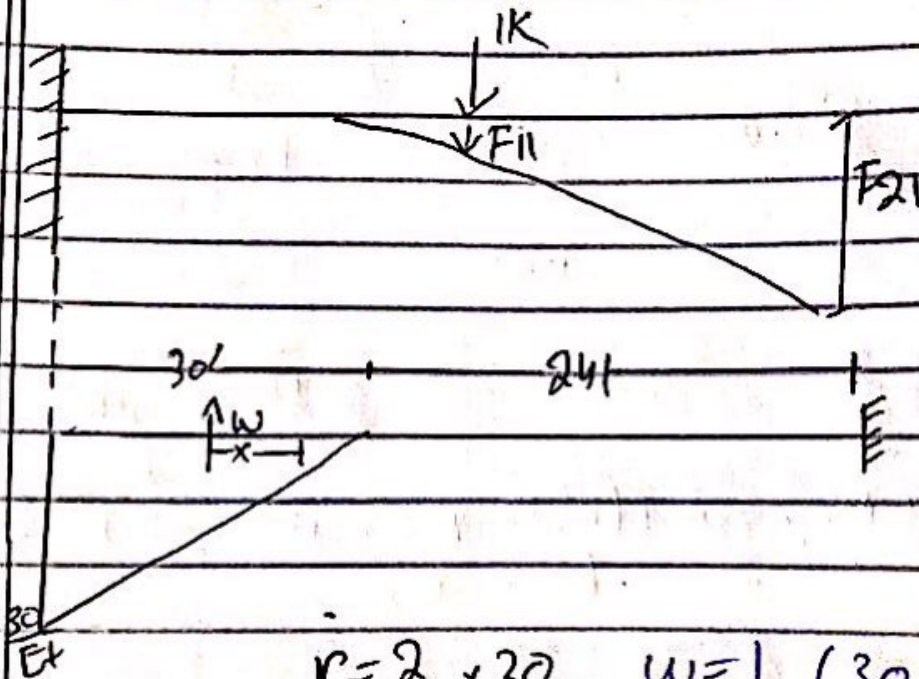 1K
F11
F21
30' 24'
w
x
30
EI
r = 2 × 30 w = 1 (30